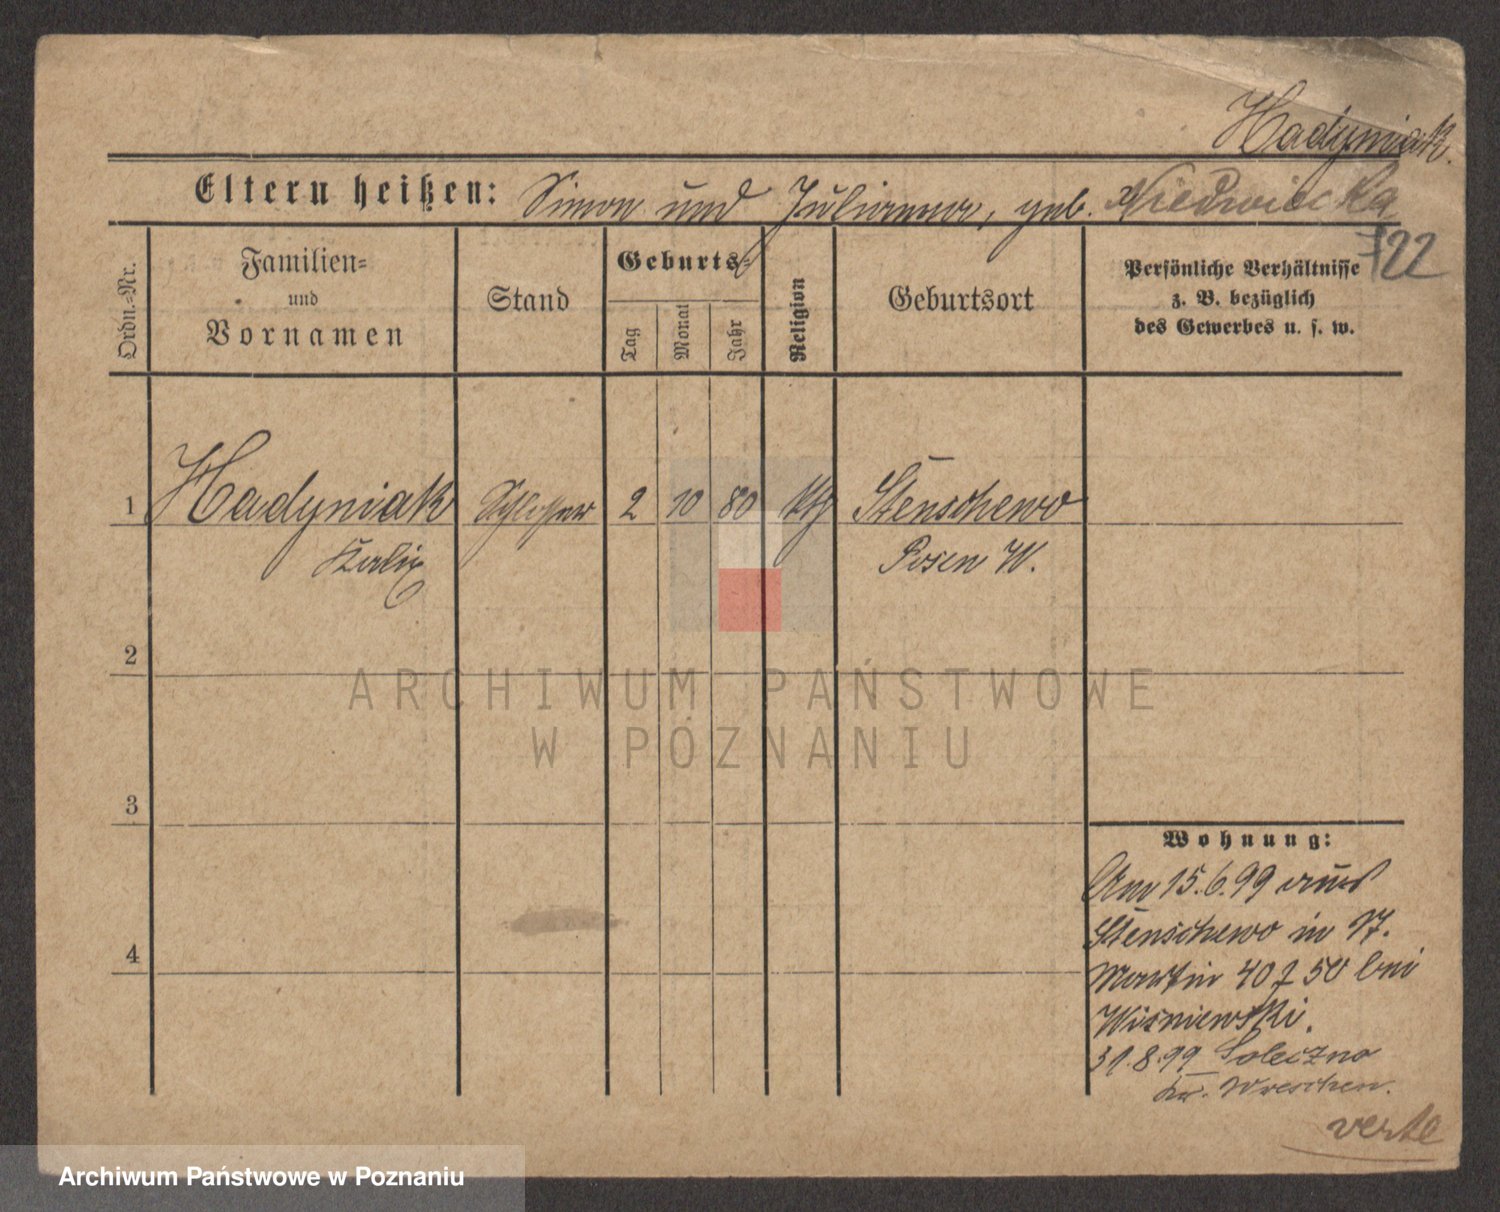 Hadyniak.
Eltern heißen: Simon und Julianna, geb. Niedwiecka
722
Ordn.-Nr.
Familien-
und
Vornamen
Stand
Geburts-
Tag
Monat
Jahr
Religion
Geburtsort
Persönliche Verhältnisse
z. B. bezüglich
des Gewerbes u. s. w.
1 Hadyniak Schlosser 2 10 80 kth Stenschewo
Felix Posen W.
2
3
4
Wohnung:
Am 15.6.99 aus
Stenschewo in St.
Martin 40 50 bei
Wisniewski.
31.8.99 Soleczno
Kr. Wreschen.
verte
ARCHIWUM PAŃSTWOWE
W POZNANIU
Archiwum Państwowe w Poznaniu